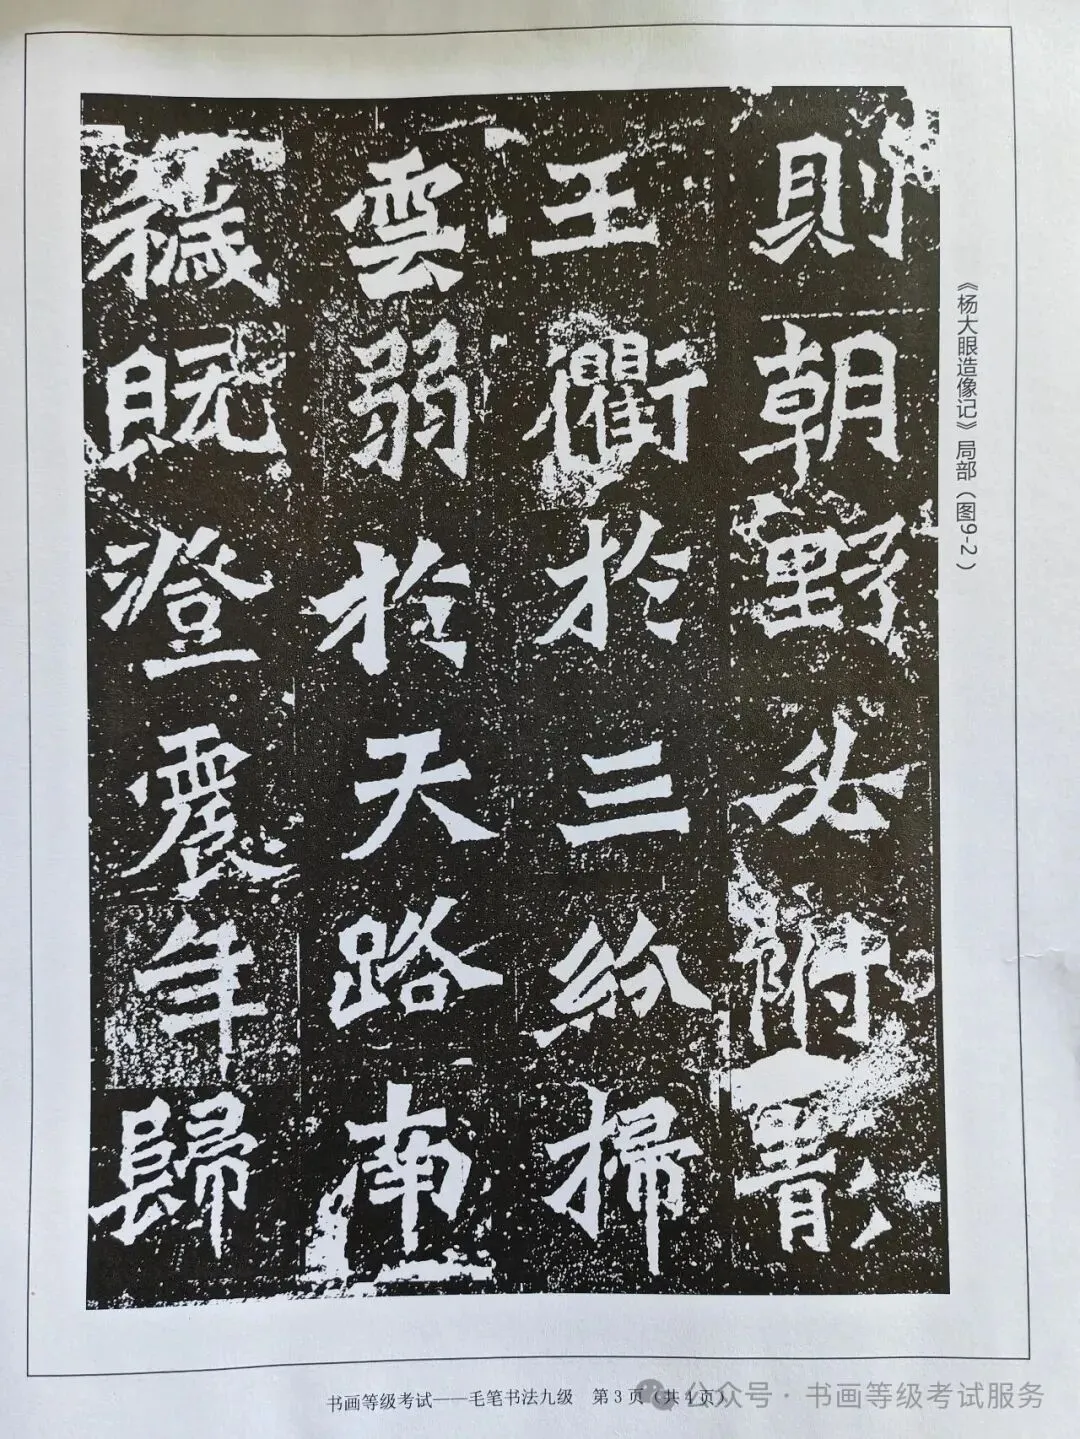 則朝野必附
王衢於三紛掃
雲弱於天路南
穢既澄震年歸
《杨大眼造像记》局部（图9-2）
书画等级考试——毛笔书法九级 第3页（共4页）
公众号·书画等级考试服务